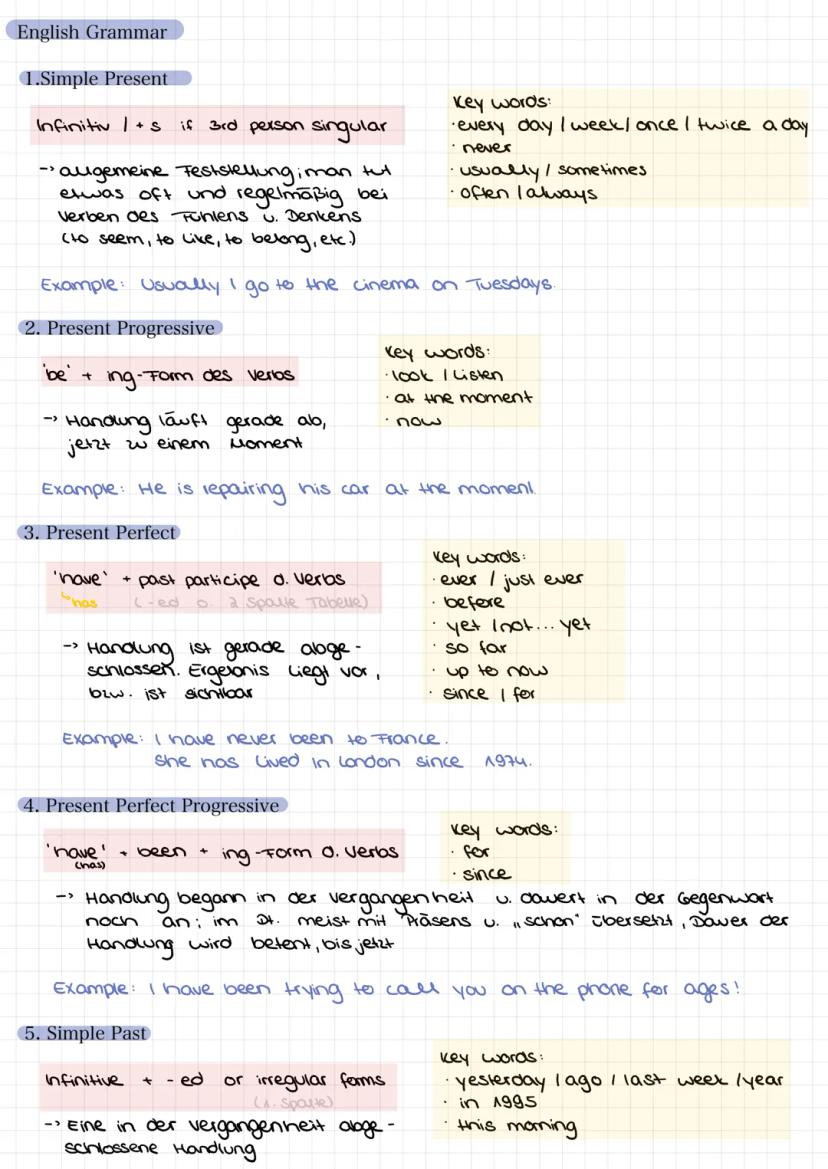 English Grammar
1.Simple Present
Infinitiv / + s if 3rd person singular
Key words:
· every day / week / once / twice a day
· never
· usually / sometimes
· often / always
-> allgemeine Feststellung; man tut
etwas oft und regelmäßig bei
Verben des Fühlens u. Denkens
(to seem, to like, to belong, etc.)
Example: Usually I go to the cinema on Tuesdays.
2. Present Progressive
'be' + ing-Form des Verbs
Key words:
· look / listen
· at the moment
· now
-> Handlung läuft gerade ab,
jetzt zu einem Moment
Example: He is repairing his car at the moment.
3. Present Perfect
'have' + past participe d. Verbs
has (-ed o. 2 Spalte Tabelle)
Key words:
· ever / just ever
· before
· yet / not... yet
· so far
· up to now
· since / for
-> Handlung ist gerade abge-
schlossen. Ergebnis liegt vor,
bzw. ist sichtbar
Example: I have never been to France.
She has lived in London since 1974.
4. Present Perfect Progressive
'have' + been + ing-Form d. Verbs
(has)
Key words:
· for
· since
-> Handlung begann in der Vergangenheit u. dauert in der Gegenwart
noch an; im Dt. meist mit Präsens u. „schon" übersetzt, Dauer der
Handlung wird betont, bis jetzt
Example: I have been trying to call you on the phone for ages!
5. Simple Past
Infinitive + -ed or irregular forms
(1. Spalte)
Key words:
· yesterday / ago / last week / year
· in 1995
· this morning
-> Eine in der Vergangenheit abge-
schlossene Handlung